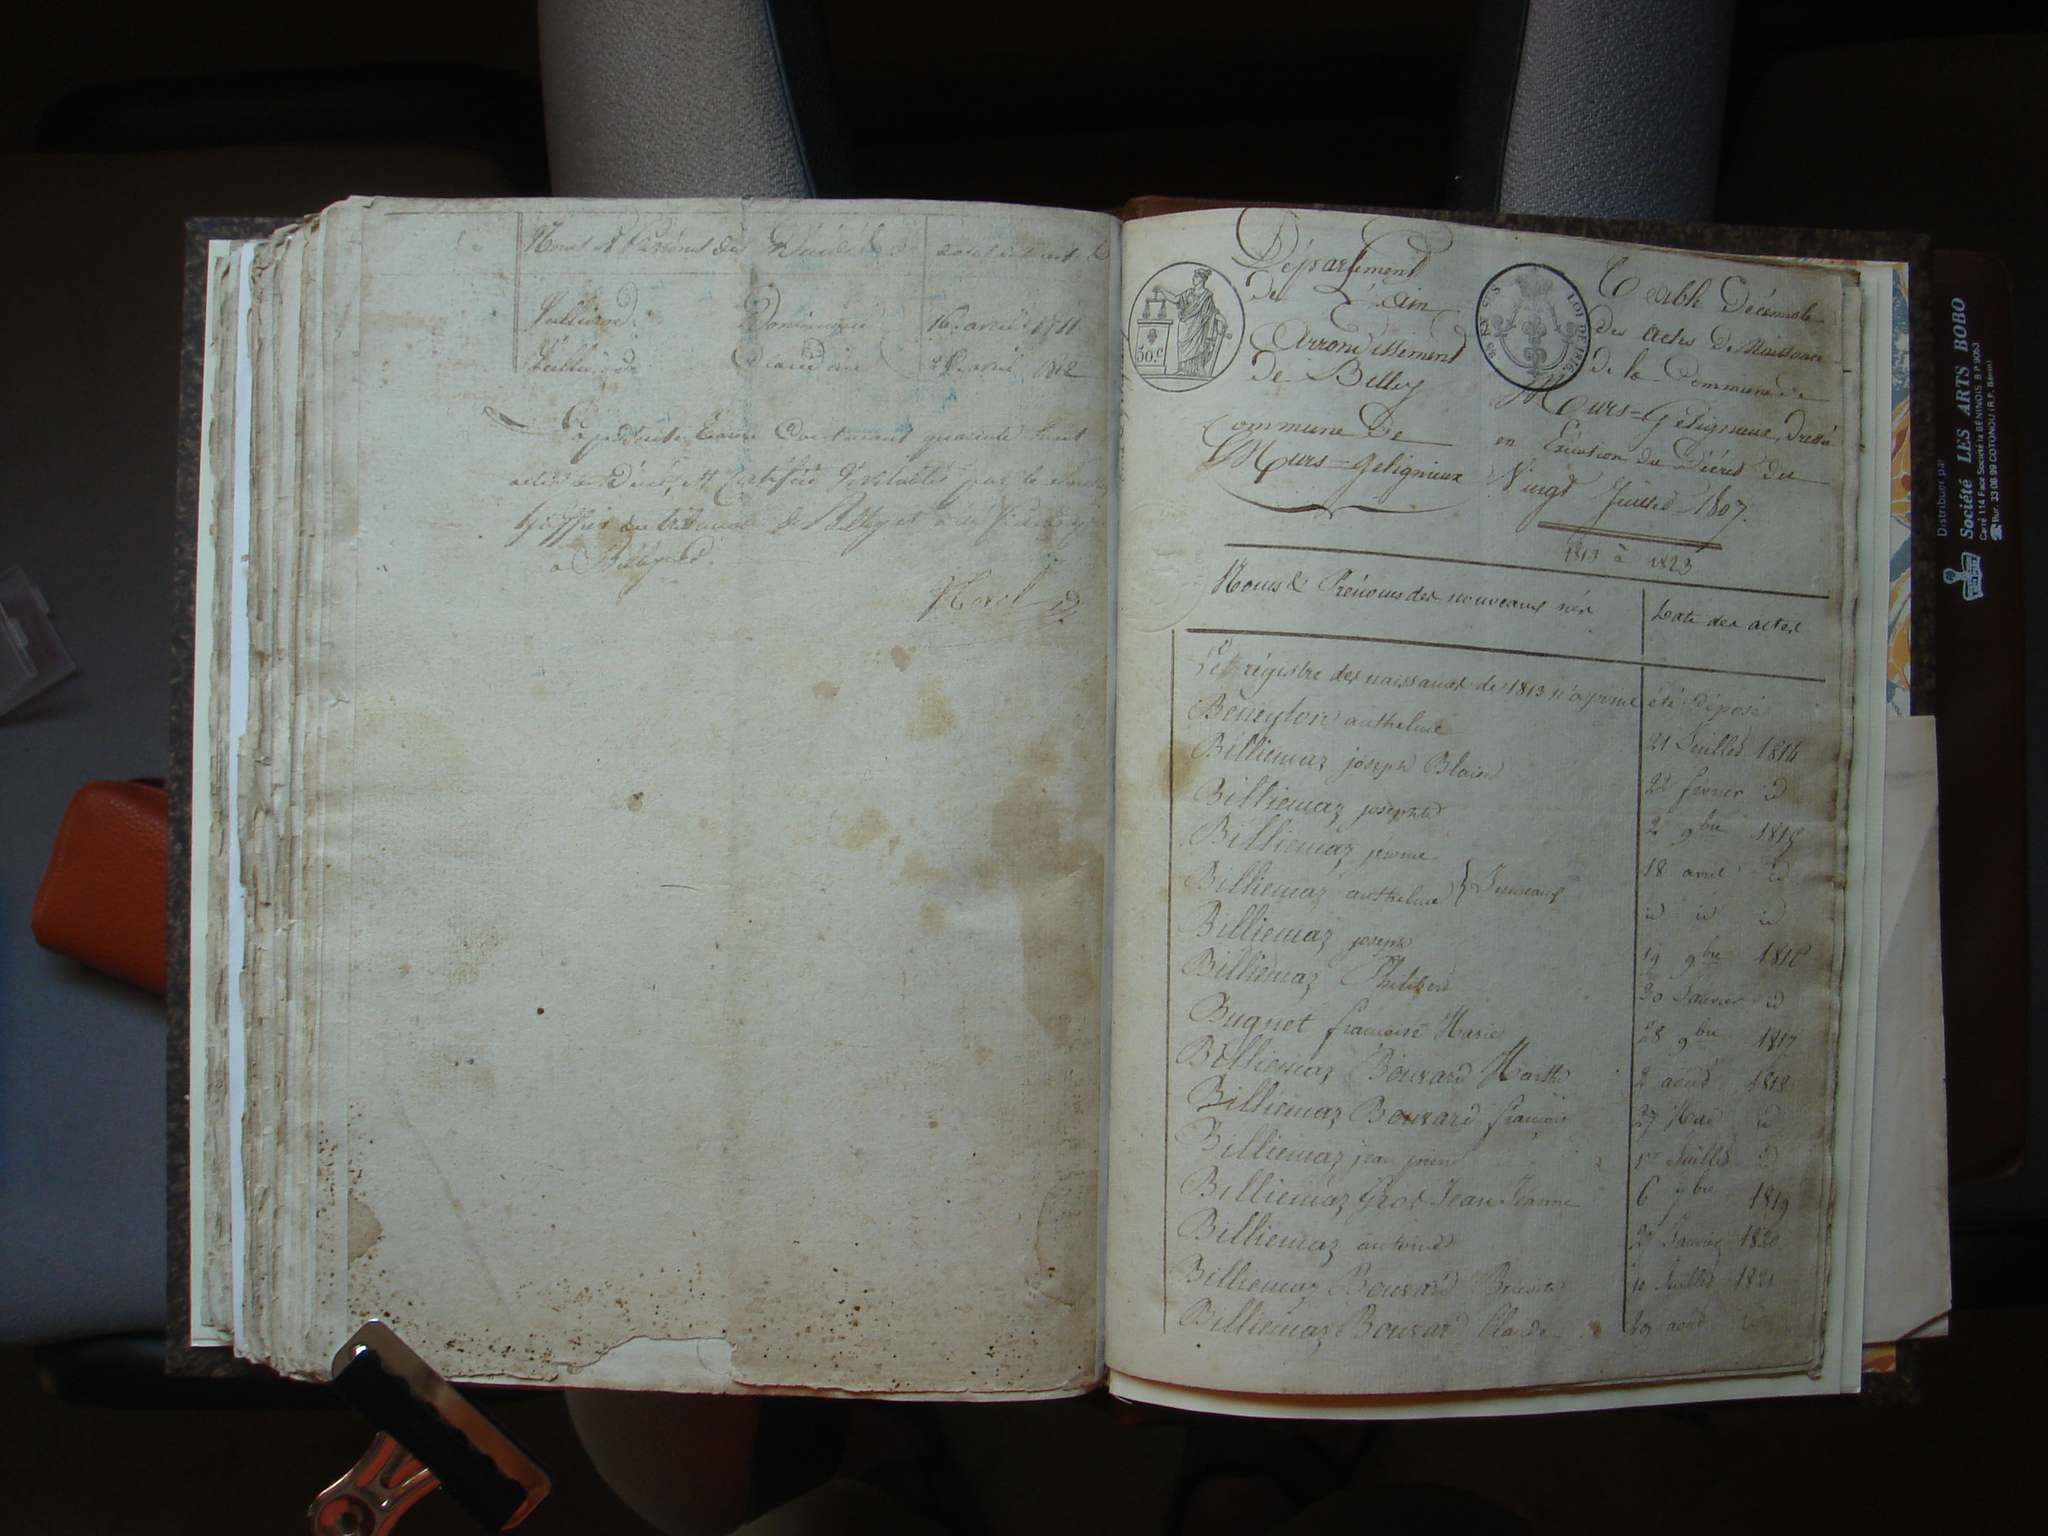 Noms et Prénoms des Décédés
Dominique 16 avril 1811
Claudine avril 1812
La présente Table Contenant quarante huit
actes de Décès, et Certifiée Véritable par le
Greffier du tribunal de
à Belley
Morel
Département
de l'ain
Arrondissement
de Belley
Commune De
Murs=Gelignieux
50.C
LOI DE 1816
Table Décennale
des actes de Naissance
de la Commune de
Murs=Gélignieux, dressée
en Exécution du Décret du
Vingt Juillet 1807.
1813 à 1823
Noms & Prénoms des nouveaux nés Date des actes
Le régistre des naissances de 1813 n'a point été déposé
Beneyton anthelme 21 Juillet 1814
Billiemaz joseph Blaise 22 fevrier id
Billiemaz josephte 2 9bre 1815
Billiemaz jerome 18 avril id
Billiemaz anthelme } Jumeaux id id id
Billiemaz joseph 14 9bre 1816
Billiemaz Philibert 30 Janvier id
Bugnet francoise Marie 28 9bre 1817
Billiemaz Bouvard Marthe 2 août 1818
Billiemaz Bouvard francois 27 Mai id
Billiemaz jean pierre 1er Juillet id
Billiemaz Gros Jean Jeanne 6 1819
Billiemaz antoine 2 Janvier 1820
Billiemaz Bouvard 10 Juillet 1821
Billiemaz Bouvard Claude 29 août id
Distribuer par
Société LES ARTS BOBO
Carré 114 Face Société la BÉNINOIS. B.P. 9053
☎ Bur. 33 08 99 COTONOU (R.P. Bénin)